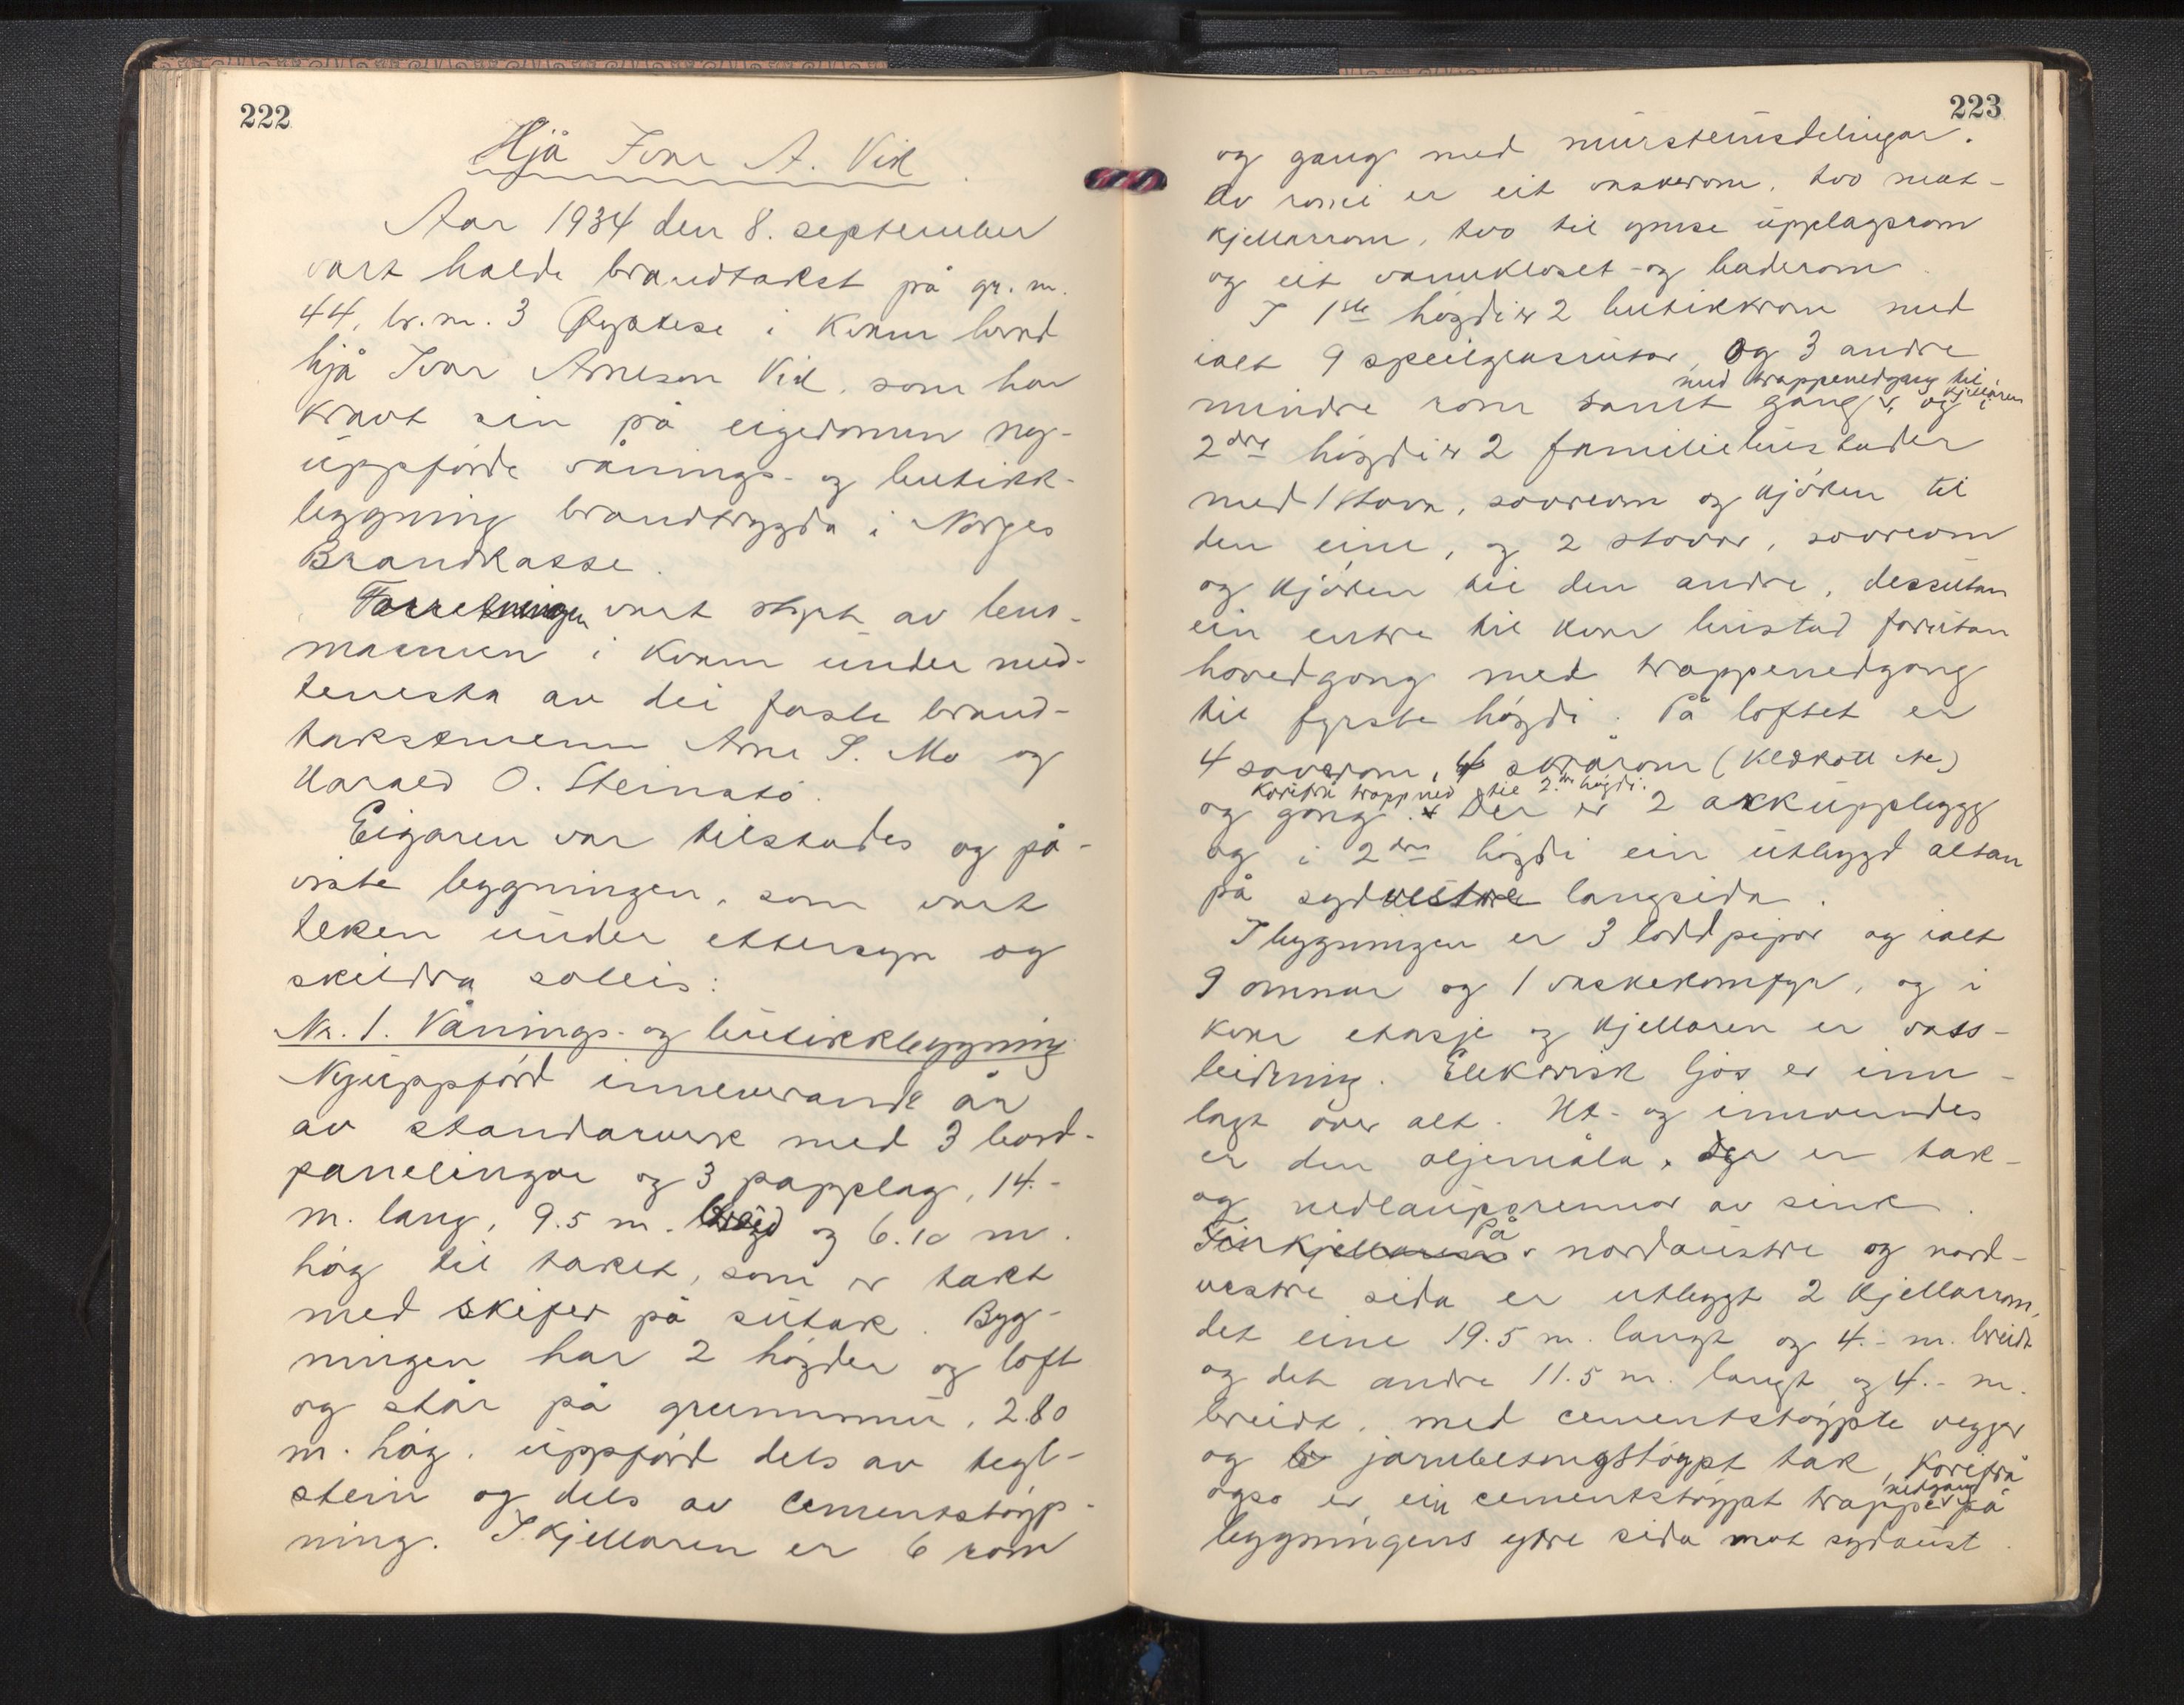 222
Hjå Ivar A. Vik.
Aar 1934 den 8. september
vart halde brandtakst på gr. nr.
44, br. nr. 3 Øystese i Kvam herad
hjå Ivar Arneson Vik, som har
kravt sin på eigedomen ny-
uppförde vånings- og butikk-
bygning brandtrygda i Norges
Brandkasse.
Forretningen vart styrt av lens-
mannen i Kvam under med-
tenesta av dei faste brand-
takstmenn Arne S. Mo og
Harald O. Steinstö.
Eigaren var tilstades og på-
viste bygningen, som vart
teken under ettersyn og
skildra soleis:
Nr. 1. Vånings- og butikkbygning
Nyuppförd inneverande år
av standarverk med 3 bord-
panelingar og 3 papplag, 14.-
m. lang, 9.5 m. breid og 6.10 m.
høg til taket, som er takt
med skifer på sutak. Byg-
ningen har 2 högder og loft
og står på grunnmur, 2.80
m. høg, uppförd dels av tegl-
stein og dels av cementstöyp-
ning. I kjellaren er 6 rom
223
og gang med mursteinsdelingar.
Av romi er eit vaskerom, tvo mat-
kjellarrom, tvo til ymse upplagsrom
og eit vannkloset- og baderom.
I 1ste högdi er 2 butikkrom med
ialt 9 speilglasrutor, og 3 andre
med trappenedgang til kjellaren
mindre rom samt gang, og i
2dre högdi er 2 familiebustader
med 1 stova, soverom og kjöken til
den eine, og 2 stovor, soverom
og kjöken til den andre, dessutan
ein entre til kvar bustad forutan
hovedgong med trappenedgang
til fyrste högdi. På loftet er
4 soverom, 4 skrårom (kledkott etc)
korifra trapp ned til 2dre högdi.
og gong. Der er 2 arkuppbygg
og i 2dre högdi ein utbygd altan
på sydvestre langsida.
I bygningen er 3 loddpipor og ialt
9 omnar og 1 vaskekomfyr, og i
kvar etasje og kjellaren er vass-
leidning. Elektrisk ljos er inn-
lagt over alt. Ut- og innvendes
er den oljemåla, der er tak-
og nedlaupsrennor av sink.
På
Til kjellaren nordaustre og nord-
vestre sida er utbygt 2 kjellarrom,
det eine 19.5 m. langt og 4.- m. breidt
og det andre 11.5 m. langt og 4.- m.
breidt, med cementstöypte vegger
og jarnbetongstöypt tak, korifrå
nedgang
ogso er ein cementstöypt trappe på
bygningens ydre sida mot sydaust.